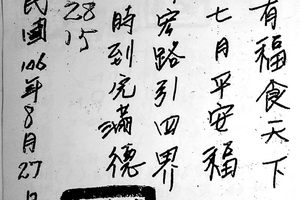 有福食天下
七月平安福
宏路引四界
時到完滿德
28
15
民國106年8月27日